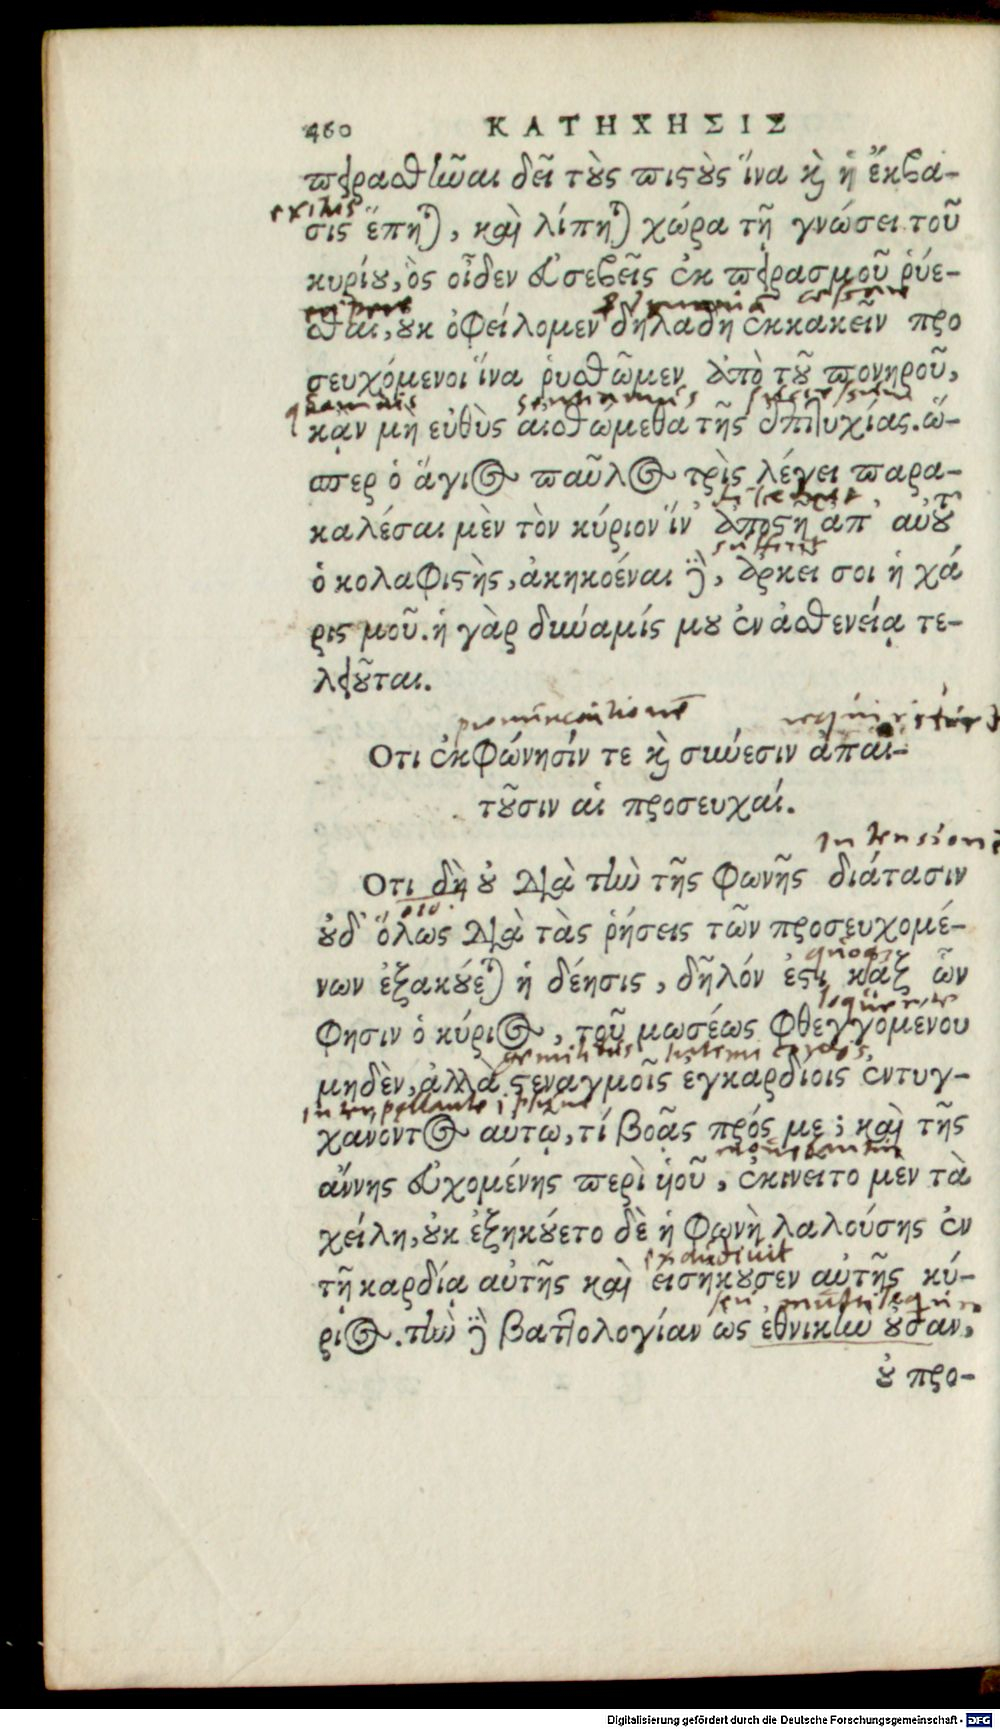 460 ΚΑΤΗΧΗΣΙΣ
πειρασθῆναι δεῖ τοὺς πιστοὺς ἵνα καὶ ἡ ἔκβα-
exitus
σις ἕπηται, καὶ λίπηται χώρα τῇ γνώσει τοῦ
κυρίου, ὃς οἶδεν εὐσεβεῖς ἐκ πειρασμοῦ ῥύε-
σθαι, οὐκ ὀφείλομεν δηλαδὴ ἐκκακεῖν προ
σευχόμενοι ἵνα ῥυσθῶμεν ἀπὸ τοῦ πονηροῦ,
quamuis sentiamus
κἂν μὴ εὐθὺς αἰσθώμεθα τῆς ἐπιτυχίας. ὥ-
σπερ ὁ ἅγιος παῦλος τρὶς λέγει παρα-
καλέσαι μὲν τὸν κύριον ἵν' ἀποστῇ ἀπ' αὐτοῦ
sufficit
ὁ κολαφιστὴς, ἀκηκοέναι δὲ, ἀρκεῖ σοι ἡ χά
ρις μοῦ. ἡ γὰρ δύναμίς μου ἐν ἀσθενείᾳ τε-
λειοῦται.
pronunciationē
Οτι ἐκφώνησίν τε καὶ σύνεσιν ἀπαι-
τοῦσιν αἱ προσευχαί.
intensionē
Οτι δὴ οὐ διὰ τὴν τῆς φωνῆς διάτασιν
οὐδ' ὅλως διὰ τὰς ῥήσεις τῶν προσευχομέ-
νων ἐξακούεται ἡ δέησις, δῆλόν ἐστι καθ' ὧν
φησιν ὁ κύριος, τοῦ μωσέως φθεγγομένου
gemitibus
μηδὲν, ἀλλὰ στεναγμοῖς εγκαρδίοις ἐντυγ-
χάνοντος αυτῳ, τί βοᾷς πρός με; καὶ τῆς
ἄννης εὐχομένης περὶ υἱοῦ, ἐκινειτο μεν τὰ
χείλη, οὐκ ἐξηκούετο δὲ ἡ φωνὴ λαλούσης ἐν
exaudiuit
τῇ καρδίᾳ αὐτῆς καὶ εισήκουσεν αὐτῆς κύ-
ριος. τὴν δὲ βαττολογίαν ὡς ἐθνικὴν οὖσαν,
οὐ προ-
Digitalisierung gefördert durch die Deutsche Forschungsgemeinschaft - DFG